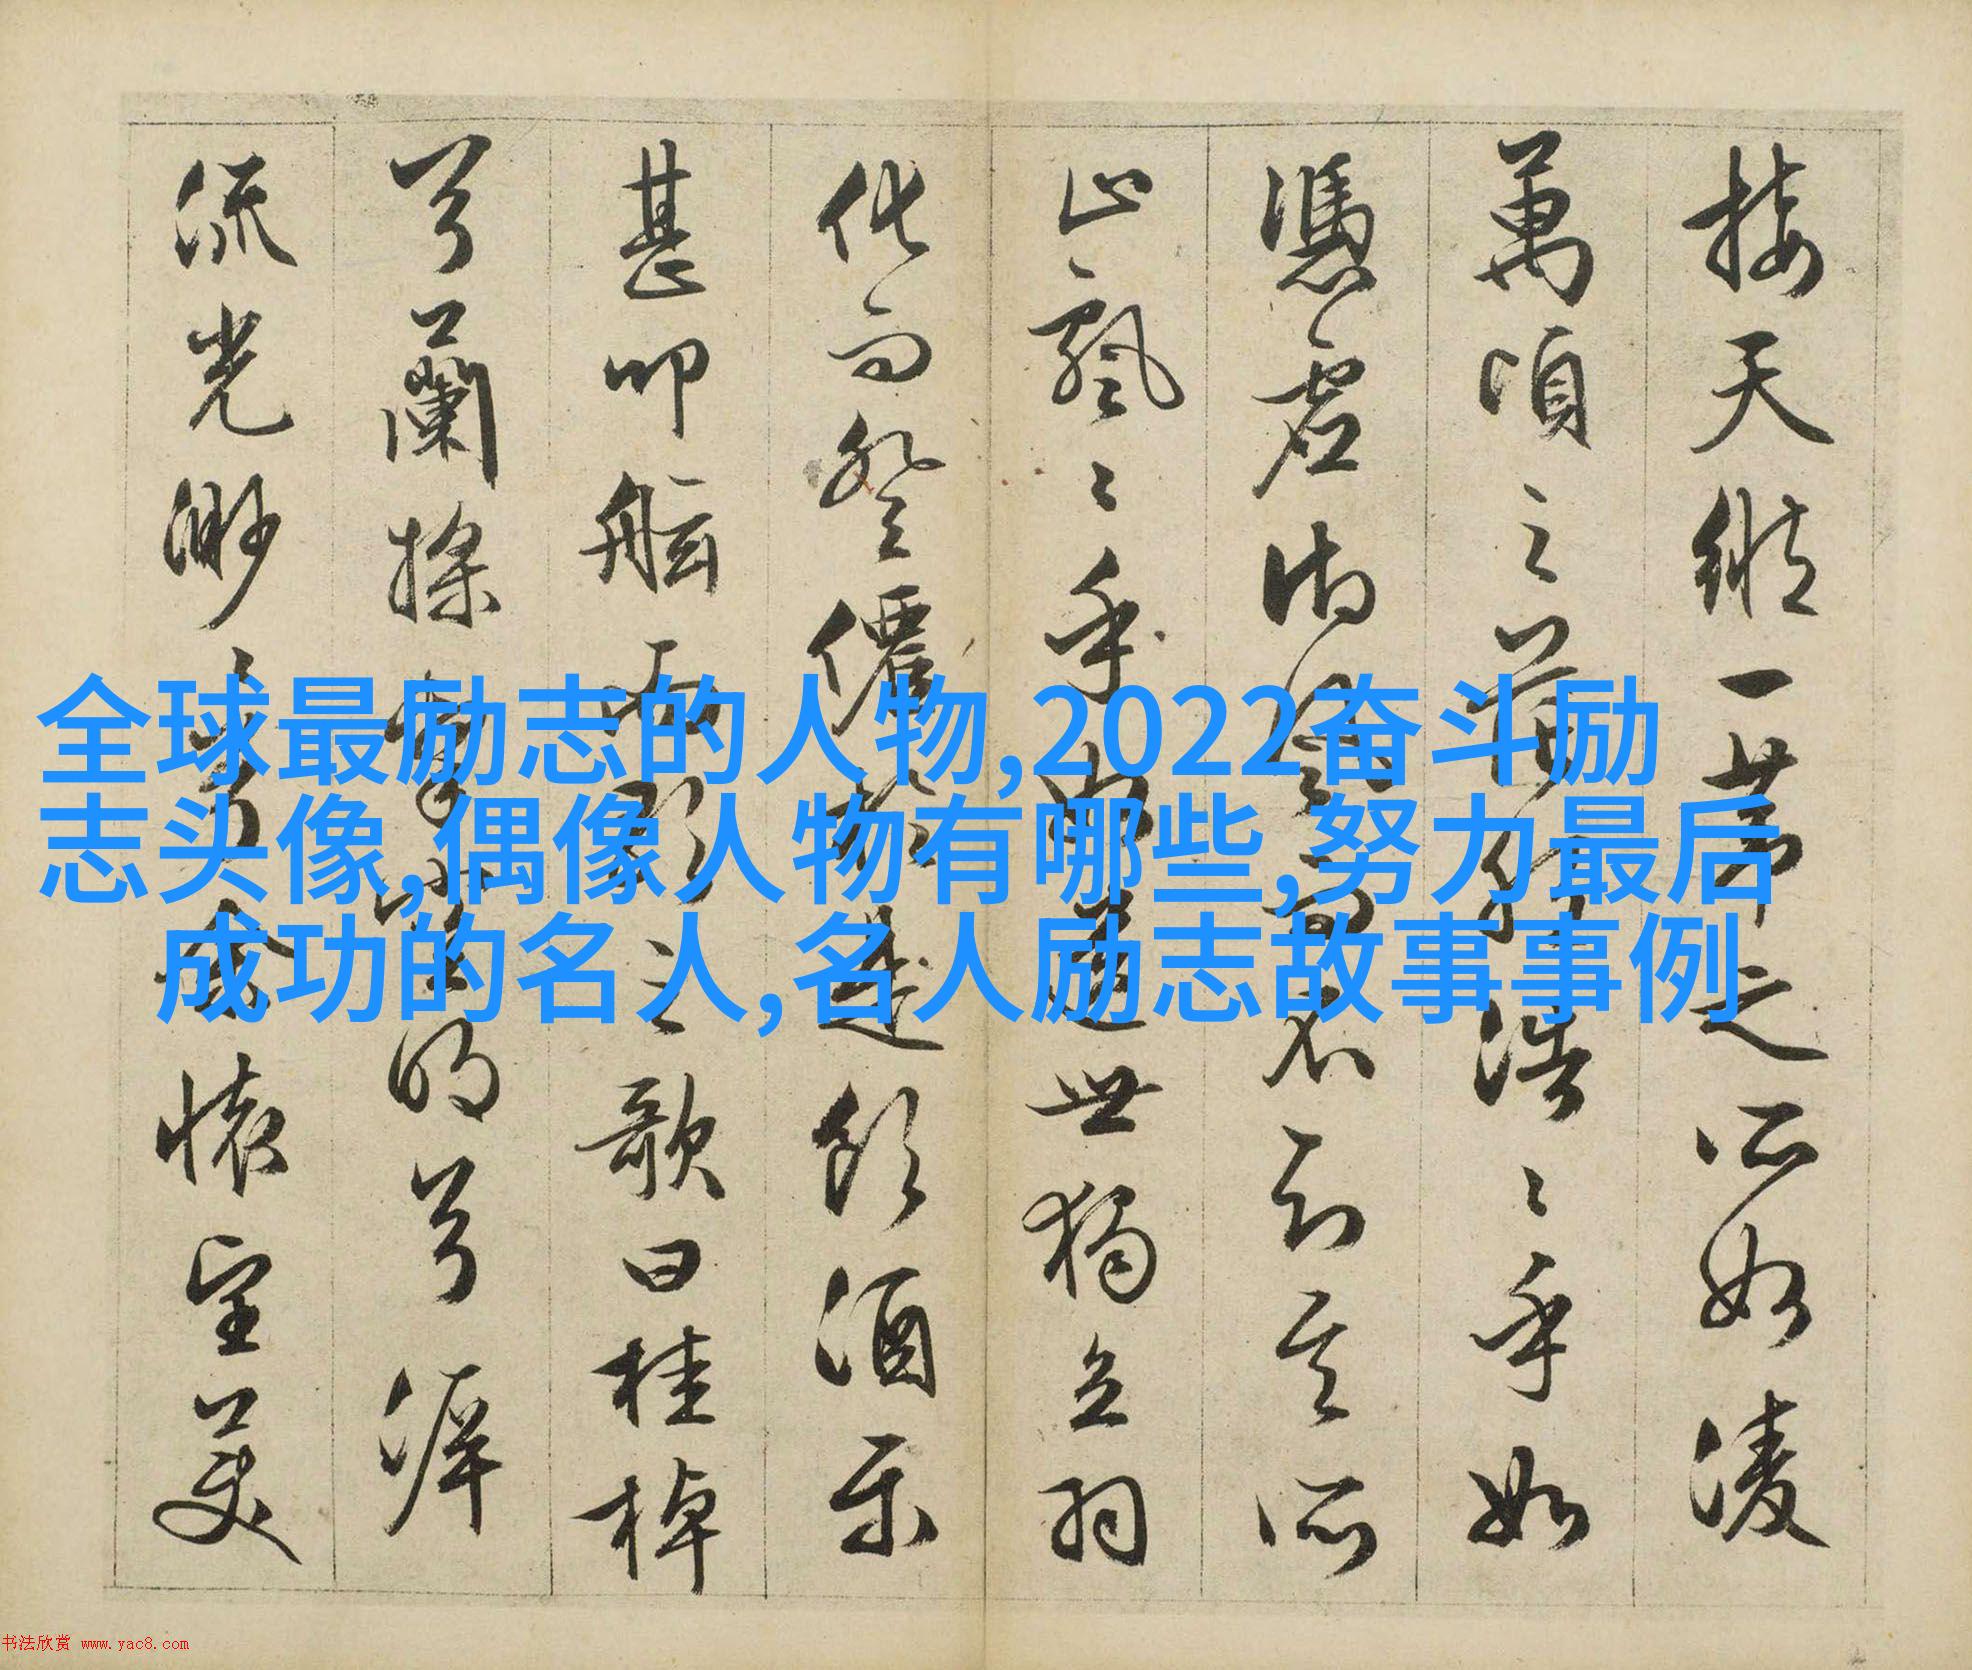 接天縱一葦之所如凌
萬頃之茫然浩〻乎如
憑虛御風而不知其所
止飄〻乎如遺世獨立羽
化而登僊於是飲酒樂
甚叩舷而歌之歌曰桂棹
兮蘭槳擊空明兮泝
流光渺〻兮余懷望美
全球最励志的人物,2022奋斗励
志头像,偶像人物有哪些,努力最后
成功的名人,名人励志故事事例
书法欣赏 www.yac8.com